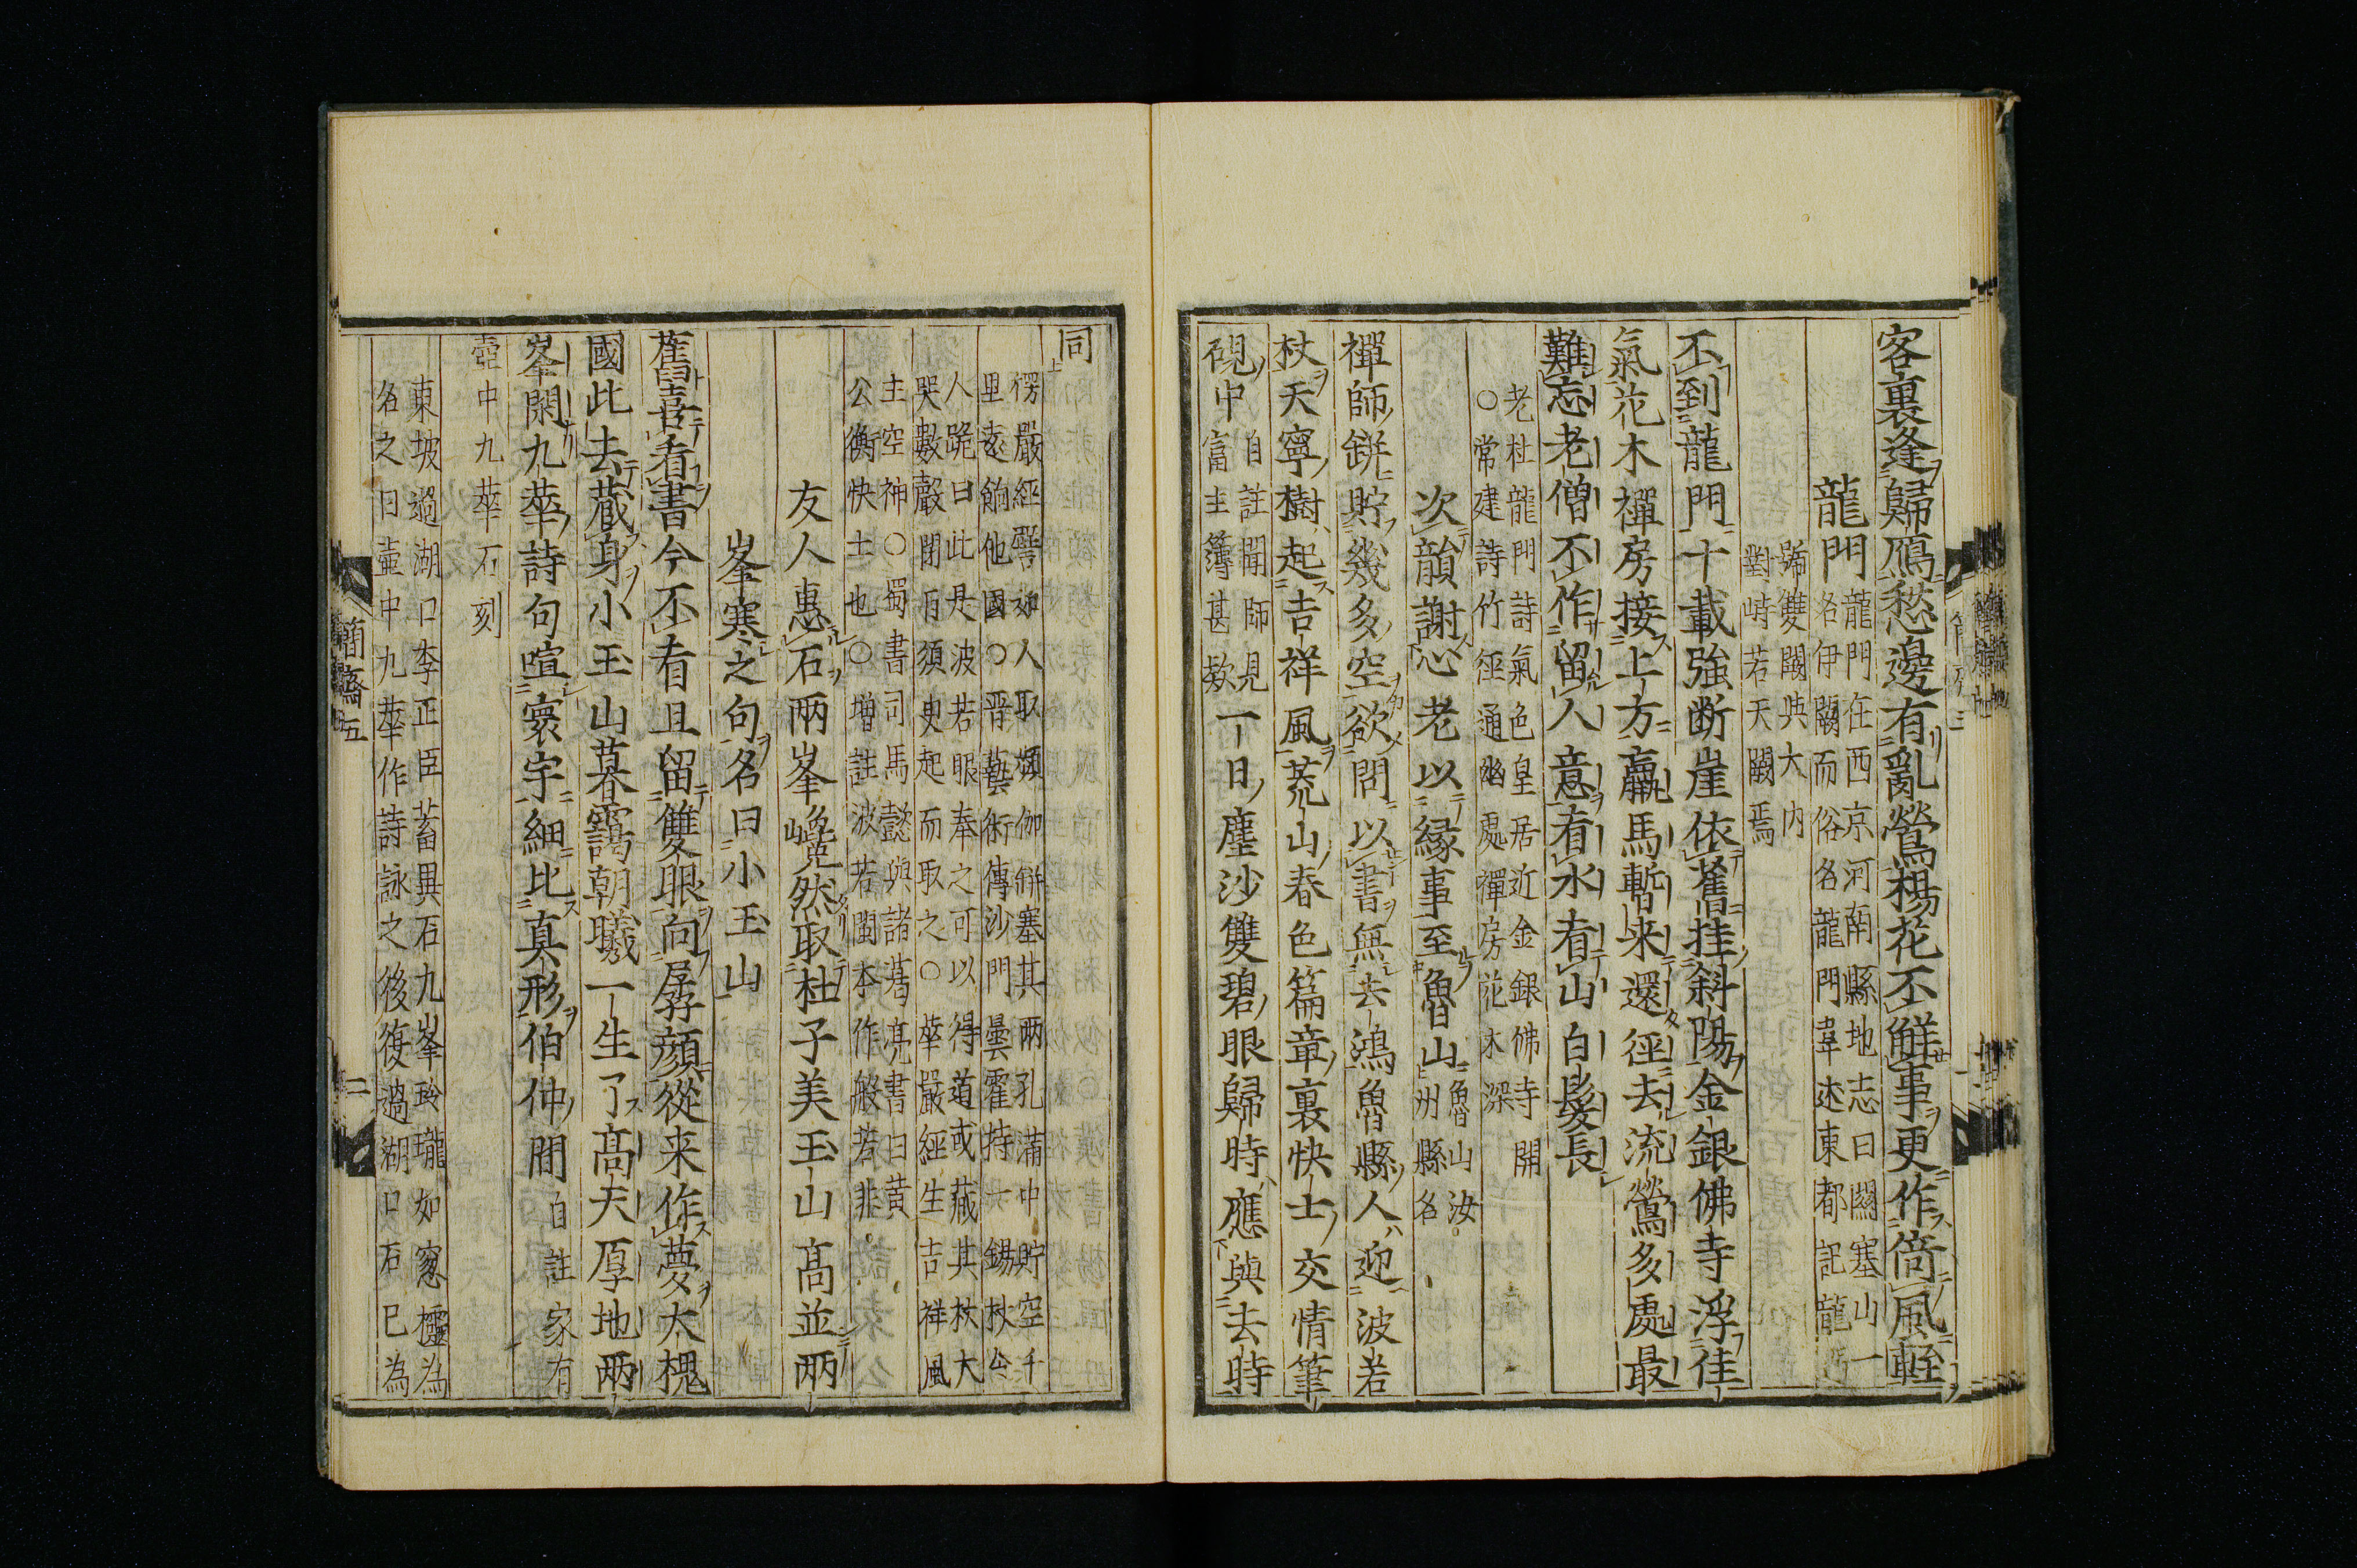 客裏逢歸鴈愁邊有亂鶯楊花不觧事更作倚風輕
龍門
龍門在西京河南縣地志曰闕塞山一
名伊闕而俗名龍門韋述東都記龍
號雙闕與大内
對峙若天闕焉
不到龍門十載強断崖依舊挂斜陽金銀佛寺浮佳
氣花木禪房接上方羸馬暫来還徑去流鶯多處最
難忘老僧不作留人意看水看山白髪長
老杜龍門詩氣色皇居近金銀佛寺開
○常建詩竹徑通幽處禪房花木深
次韻謝心老以縁事至魯山
魯山汝
州縣名
禪師缾貯幾多空欲問以書無去鴻魯縣人迎波若
杖天寧樹起吉祥風荒山春色篇章裏快士交情筆
硯中
自註聞師見
富主簿甚欵
一日塵沙雙碧眼歸時應與去時
同
㘄嚴經譬如人取頻伽缾塞其兩孔滿中貯空千
里逺餉他國○晋藝術傳沙門曇霍持一錫杖令
人跪曰此是波若眼奉之可以得道或藏其杖大
哭數聲閉目須臾起而取之○華嚴經生吉祥風
主空神○蜀書司馬懿與諸葛亮書曰黄
公衡快士也○増註波若閩本作般若非
友人惠石兩峯巉然取杜子美玉山髙並兩
峯寒之句名曰小玉山
舊喜看書今不看且留雙眼向孱顔從来作夢大槐
國此去蔵身小玉山暮靄朝曦一生了髙天厚地兩
峯閑九華詩句喧寰宇細比真形伯仲間
自註家有
壺中九華石刻
東坡過湖口李正臣蓄異石九峯玲瓏如窓櫺為
名之曰壷中九華作詩詠之後復過湖口石已為
簡齋五
二